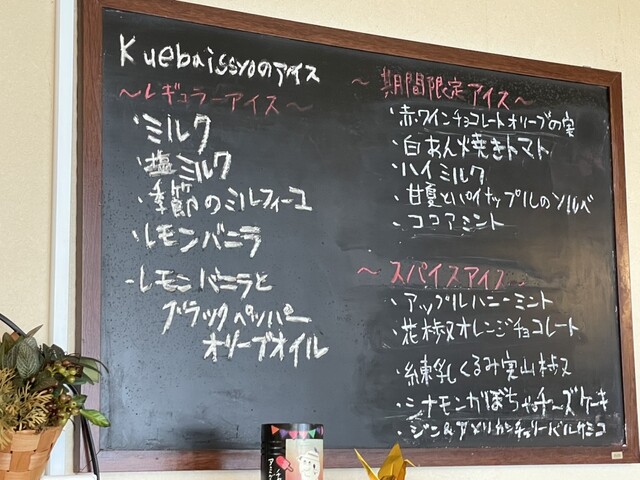 Kuebaissyoのアイス
～レギュラーアイス～
・ミルク
・塩ミルク
・季節のミルフィーユ
・レモンバニラ
・レモンバニラと
ブラックペッパー
オリーブオイル
～期間限定アイス～
・赤ワインチョコレートオリーブの実
・白あん焼きトマト
・ハイミルク
・甘夏とパイナップルのソルベ
・ココアミント
～スパイスアイス～
・アップルハニーミント
・花椒オレンジチョコレート
・練乳くるみ実山椒
・シナモンかぼちゃチーズケーキ